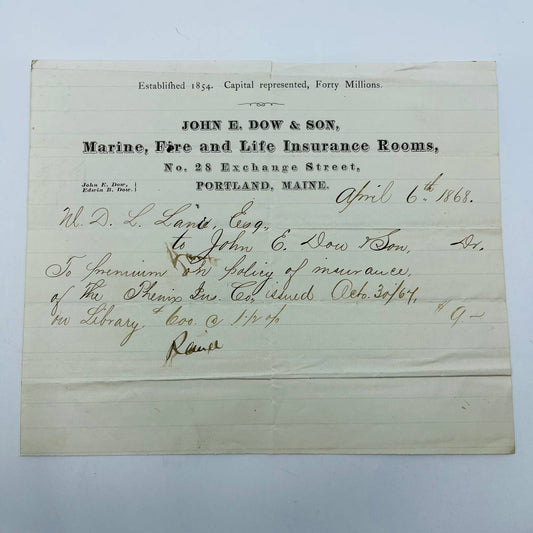 Establiſhed 1854. Capital represented, Forty Millions.
JOHN E. DOW & SON,
Marine, Fire and Life Insurance Rooms,
No. 28 Exchange Street,
John E. Dow,
Edwin B. Dow.
PORTLAND, MAINE.
April 6th 1868.
D. L. Lane, Esq.
to John E. Dow & Son, Dr.
To premium on policy of insurance
of the Phenix Ins. Co, issued Oct. 30/67,
on Library $600 @ $9-